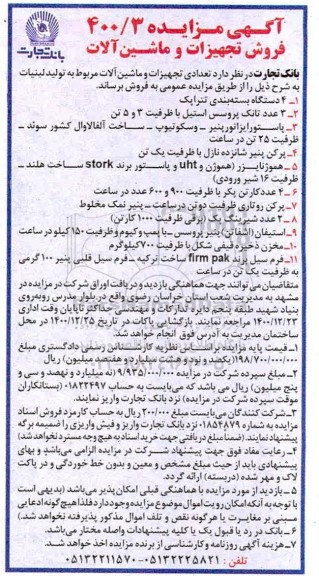 آگهی مزایده ۴۰۰/۳
فروش تجهیزات و ماشین‌آلات
بانک تجارت
بانک تجارت در نظر دارد تعدادی تجهیزات و ماشین‌آلات مربوط به تولید لبنیات
به شرح ذیل را از طریق مزایده عمومی به فروش برساند.
۱- ۴ دستگاه بسته‌بندی تتراپک
۲- ۳ عدد تانک پروسس استیل با ظرفیت ۳ و ۵ تن
۳- پاستوریزاتور پنیر – وسکوتیوپ – ساخت آلفالاوال کشور سوئد –
ظرفیت ۲۵ تن در ساعت
۴- پرکن پنیر شانزده نازل با ظرفیت یک تن
۵- هموژنایزر (هموژن و uht و پاستور برند stork ساخت هلند –
ظرفیت ۱۶ شیر ورودی)
۶- ۴ عدد کارتن پکر با ظرفیت ۹۰۰ و ۶۰۰ عدد در ساعت
۷- پرکن روتاری ظرفیت دو تن در ساعت – پنیر نمک مخلوط
۸- ۲ عدد شیرینگ پک (برقی ظرفیت ۱۰۰۰ کارتن)
۹- استیفان (اشفاتن) پنیر پروسس – با پمپ وکیوم و ظرفیت ۱۵۰ کیلو در ساعت
۱۰- مخزن ذخیره قیفی شکل با ظرفیت ۷۰۰ کیلوگرم
۱۱- فرم سیل برند firm pak ساخت ترکیه – فرم سیل قلبی پنیر ۱۰۰ گرمی
به ظرفیت یک تن در ساعت
متقاضیان می‌توانند جهت هماهنگی بازدید و دریافت اوراق شرکت در مزایده در
مشهد به مدیریت شعب استان خراسان رضوی واقع در بلوار مدرس روبه‌روی
بنیاد شهید طبقه پنجم دایره تدارکات و مهندسی حداکثر تا پایان وقت اداری
۱۴۰۰/۱۲/۲۳ مراجعه نمایند. بازگشایی پاکات در تاریخ ۱۴۰۰/۱۲/۲۵ در محل
ساختمان مدیریت به آدرس فوق انجام خواهد شد.
۱- قیمت پایه مزایده براساس نظریه کارشناس رسمی دادگستری مبلغ
۱۹۸/۷۰۰/۰۰۰/۰۰۰ (یکصد و نود و هشت میلیارد و هفتصد میلیون) ریال
۲- مبلغ سپرده شرکت در مزایده ۹/۹۳۵/۰۰۰/۰۰۰ (نه میلیارد و نهصد و سی و
پنج میلیون) ریال می باشد که می‌بایست به حساب ۰۱۸۲۲۴۹۷ (بستانکاران
موقت سپرده شرکت در مزایده) نزد بانک تجارت واریز نمایند.
۳- شرکت کنندگان می‌بایست مبلغ ۲۰۰/۰۰۰ ریال به حساب کارمزد فروش اسناد
مزایده به شماره ۰۱۸۵۴۸۷۹ نزد بانک تجارت واریز و فیش واریزی را ضمیمه برگه
پیشنهاد نمایند. (ضمنا مبلغ دریافتی جهت خرید اسناد به هیچ وجه مسترد نخواهد شد)
۴- رعایت مفاد فوق جهت پیشنهاد شرکت در مزایده الزامی می‌باشد و بهای
پیشنهادی باید از حیث مبلغ مشخص و معین و بدون خط خوردگی و در پاکت
لاک و مهر شده (دربسته) ارائه گردد.
۵- بازدید از مورد مزایده با هماهنگی قبلی امکان پذیر می‌باشد (بدیهی است
با توجه به آنکه امکان رویت اموال موضوع مزایده وجود دارد فلذا هیچ گونه ادعایی
مبنی بر مغایرت یا هر گونه نقص و تلف اموال مذکور پذیرفته نخواهد شد.)
۶- بانک در رد یا قبول یک یا کلیه پیشنهادات واصله مختار می‌باشد.
۷- هزینه آگهی روزنامه و کارشناسی از برنده مزایده اخذ خواهد شد.
تلفن: ۰۵۱۳۲۲۲۵۸۲۱ - ۰۵۱۳۲۲۱۱۵۷۰